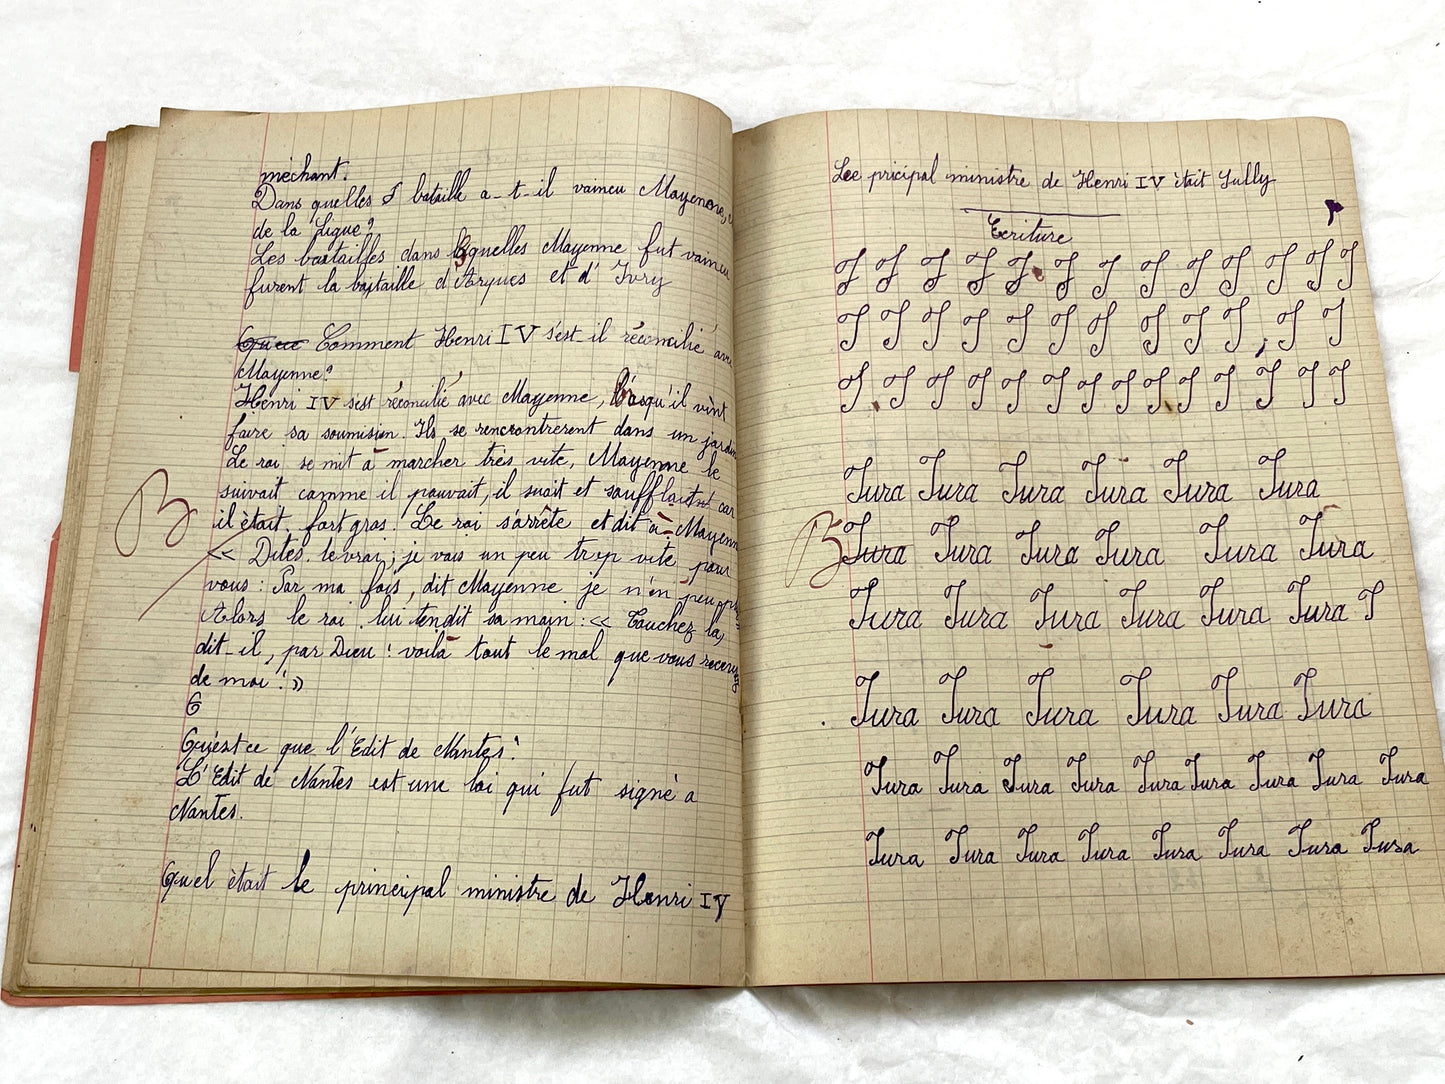 méchant.
Dans quelles bataille a-t-il vaincu Mayenne,
de la Ligue?
Les bataillfs dans lesquelles Mayenne fut vaincu
furent la bataille d'Arques et d'Ivry
Comment Henri IV s'est-il réconcilié avec
Mayenne?
Henri IV s'est réconcilié avec Mayenne, lorsqu'il vint
faire sa soumision. Ils se rencontrèrent dans un jardin
Le roi se mit à marcher très vite, Mayenne le
suivait comme il pouvait, il suait et soufflait car
il était fort gras. Le roi s'arrête et dit à Mayenne
« Dites le vrai; je vais un peu trop vite pour
vous: Par ma fois, dit Mayenne je n'en peu plus
Alors le roi lui tendit sa main: « Touchez la,
dit-il, par Dieu! voilà tout le mal que vous recevrez
de moi! »
Q
Qu'est ce que l'Edit de Nantes?
L'Edit de Nantes est une loi qui fut signé à
Nantes.
Quel était le principal ministre de Henri IV
B
Le pricipal ministre de Henri IV était Sully
Ecriture
J J J J J J J J J J J J J
J J J J J J J J J J J J
J J J J J J J J J J J J J
Jura Jura Jura Jura Jura Jura
B Jura Jura Jura Jura Jura Jura
Jura Jura Jura Jura Jura Jura J
Jura Jura Jura Jura Jura Jura
Jura Jura Jura Jura Jura Jura Jura Jura Jura
Jura Jura Jura Jura Jura Jura Jura Jura